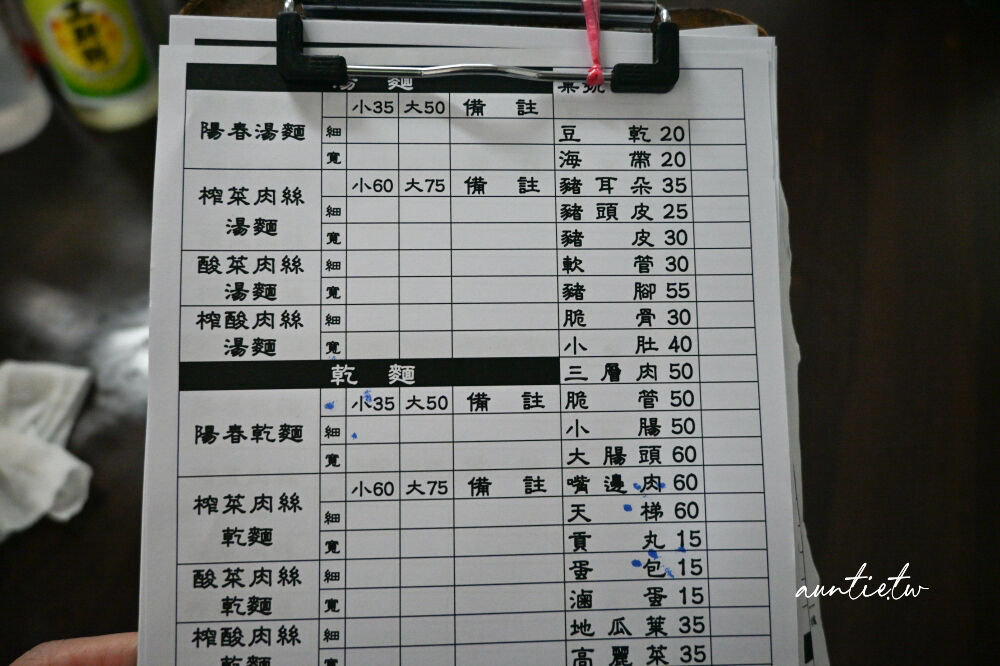 湯 麵
小35 大50 備 註
陽春湯麵
細
寬
小60 大75 備 註
榨菜肉絲
湯麵
細
寬
酸菜肉絲
湯麵
細
寬
榨酸肉絲
湯麵
細
寬
乾 麵
小35 大50 備 註
陽春乾麵
細
寬
小60 大75 備 註
榨菜肉絲
乾麵
細
寬
酸菜肉絲
乾麵
細
寬
榨酸肉絲
乾麵
細
寬
桌號
豆 乾 20
海 帶 20
豬 耳 朵 35
豬 頭 皮 25
豬 皮 30
軟 管 30
豬 腳 55
脆 骨 30
小 肚 40
三 層 肉 50
脆 管 50
小 腸 50
大 腸 頭 60
嘴 邊 肉 60
天 梯 60
貢 丸 15
蛋 包 15
滷 蛋 15
地 瓜 葉 35
高 麗 菜 35
auntie.tw